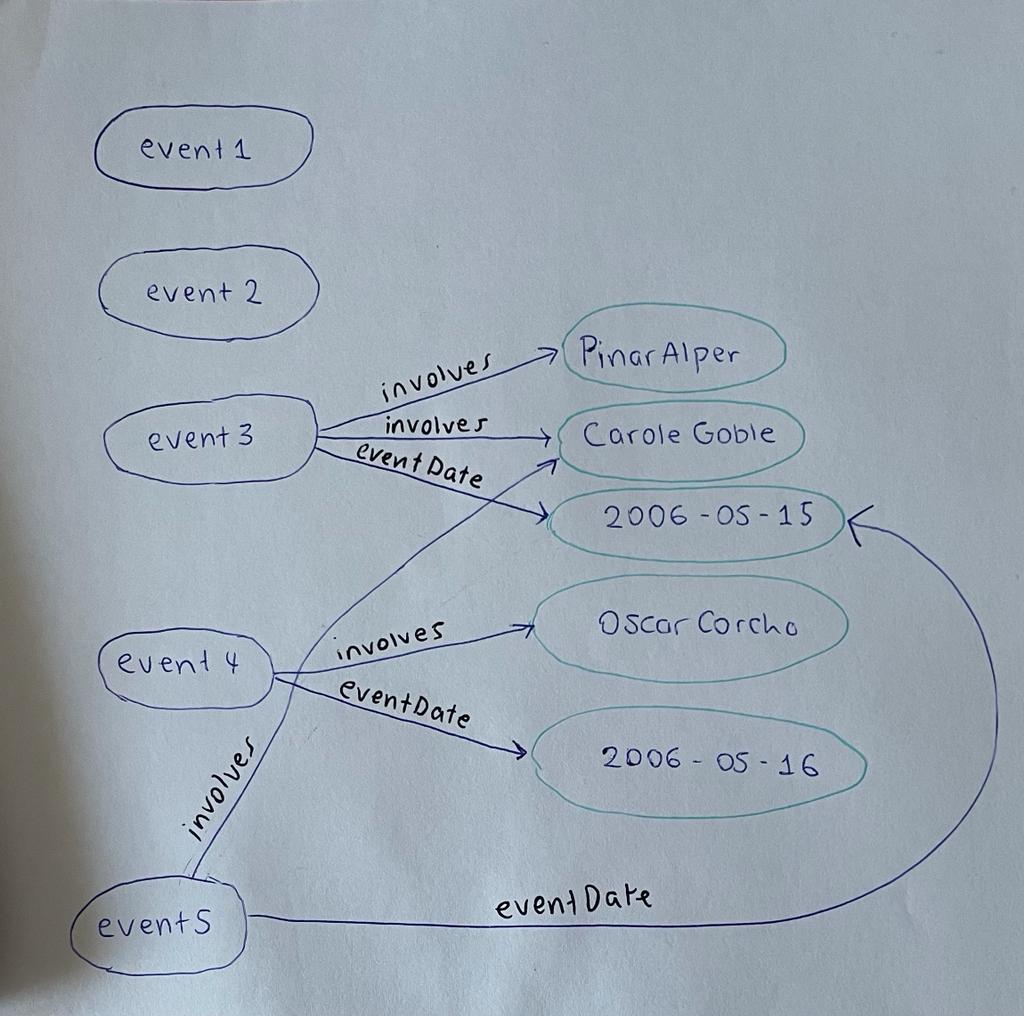 event 1
event 2
involves
Pinar Alper
event 3
involves
Carole Goble
eventDate
2006-05-15
involves
Oscar Corcho
event 4
eventDate
2006-05-16
involves
event 5
eventDate